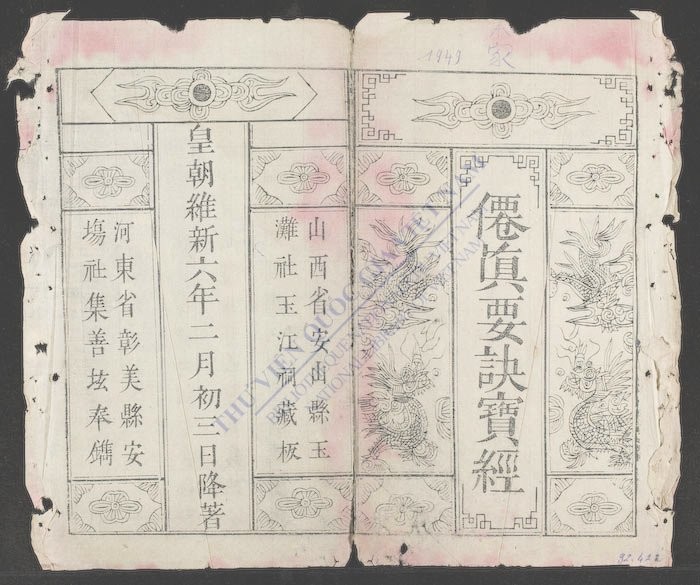 1949
家
僊眞要訣寶經
山西省安山縣玉
灘社玉江祠藏板
皇朝維新六年二月初三日降著
河東省彰美縣安
塲社集善坛奉鐫
THƯ VIỆN QUỐC GIA VIỆT NAM
NATIONAL LIBRARY OF VIETNAM
92.422